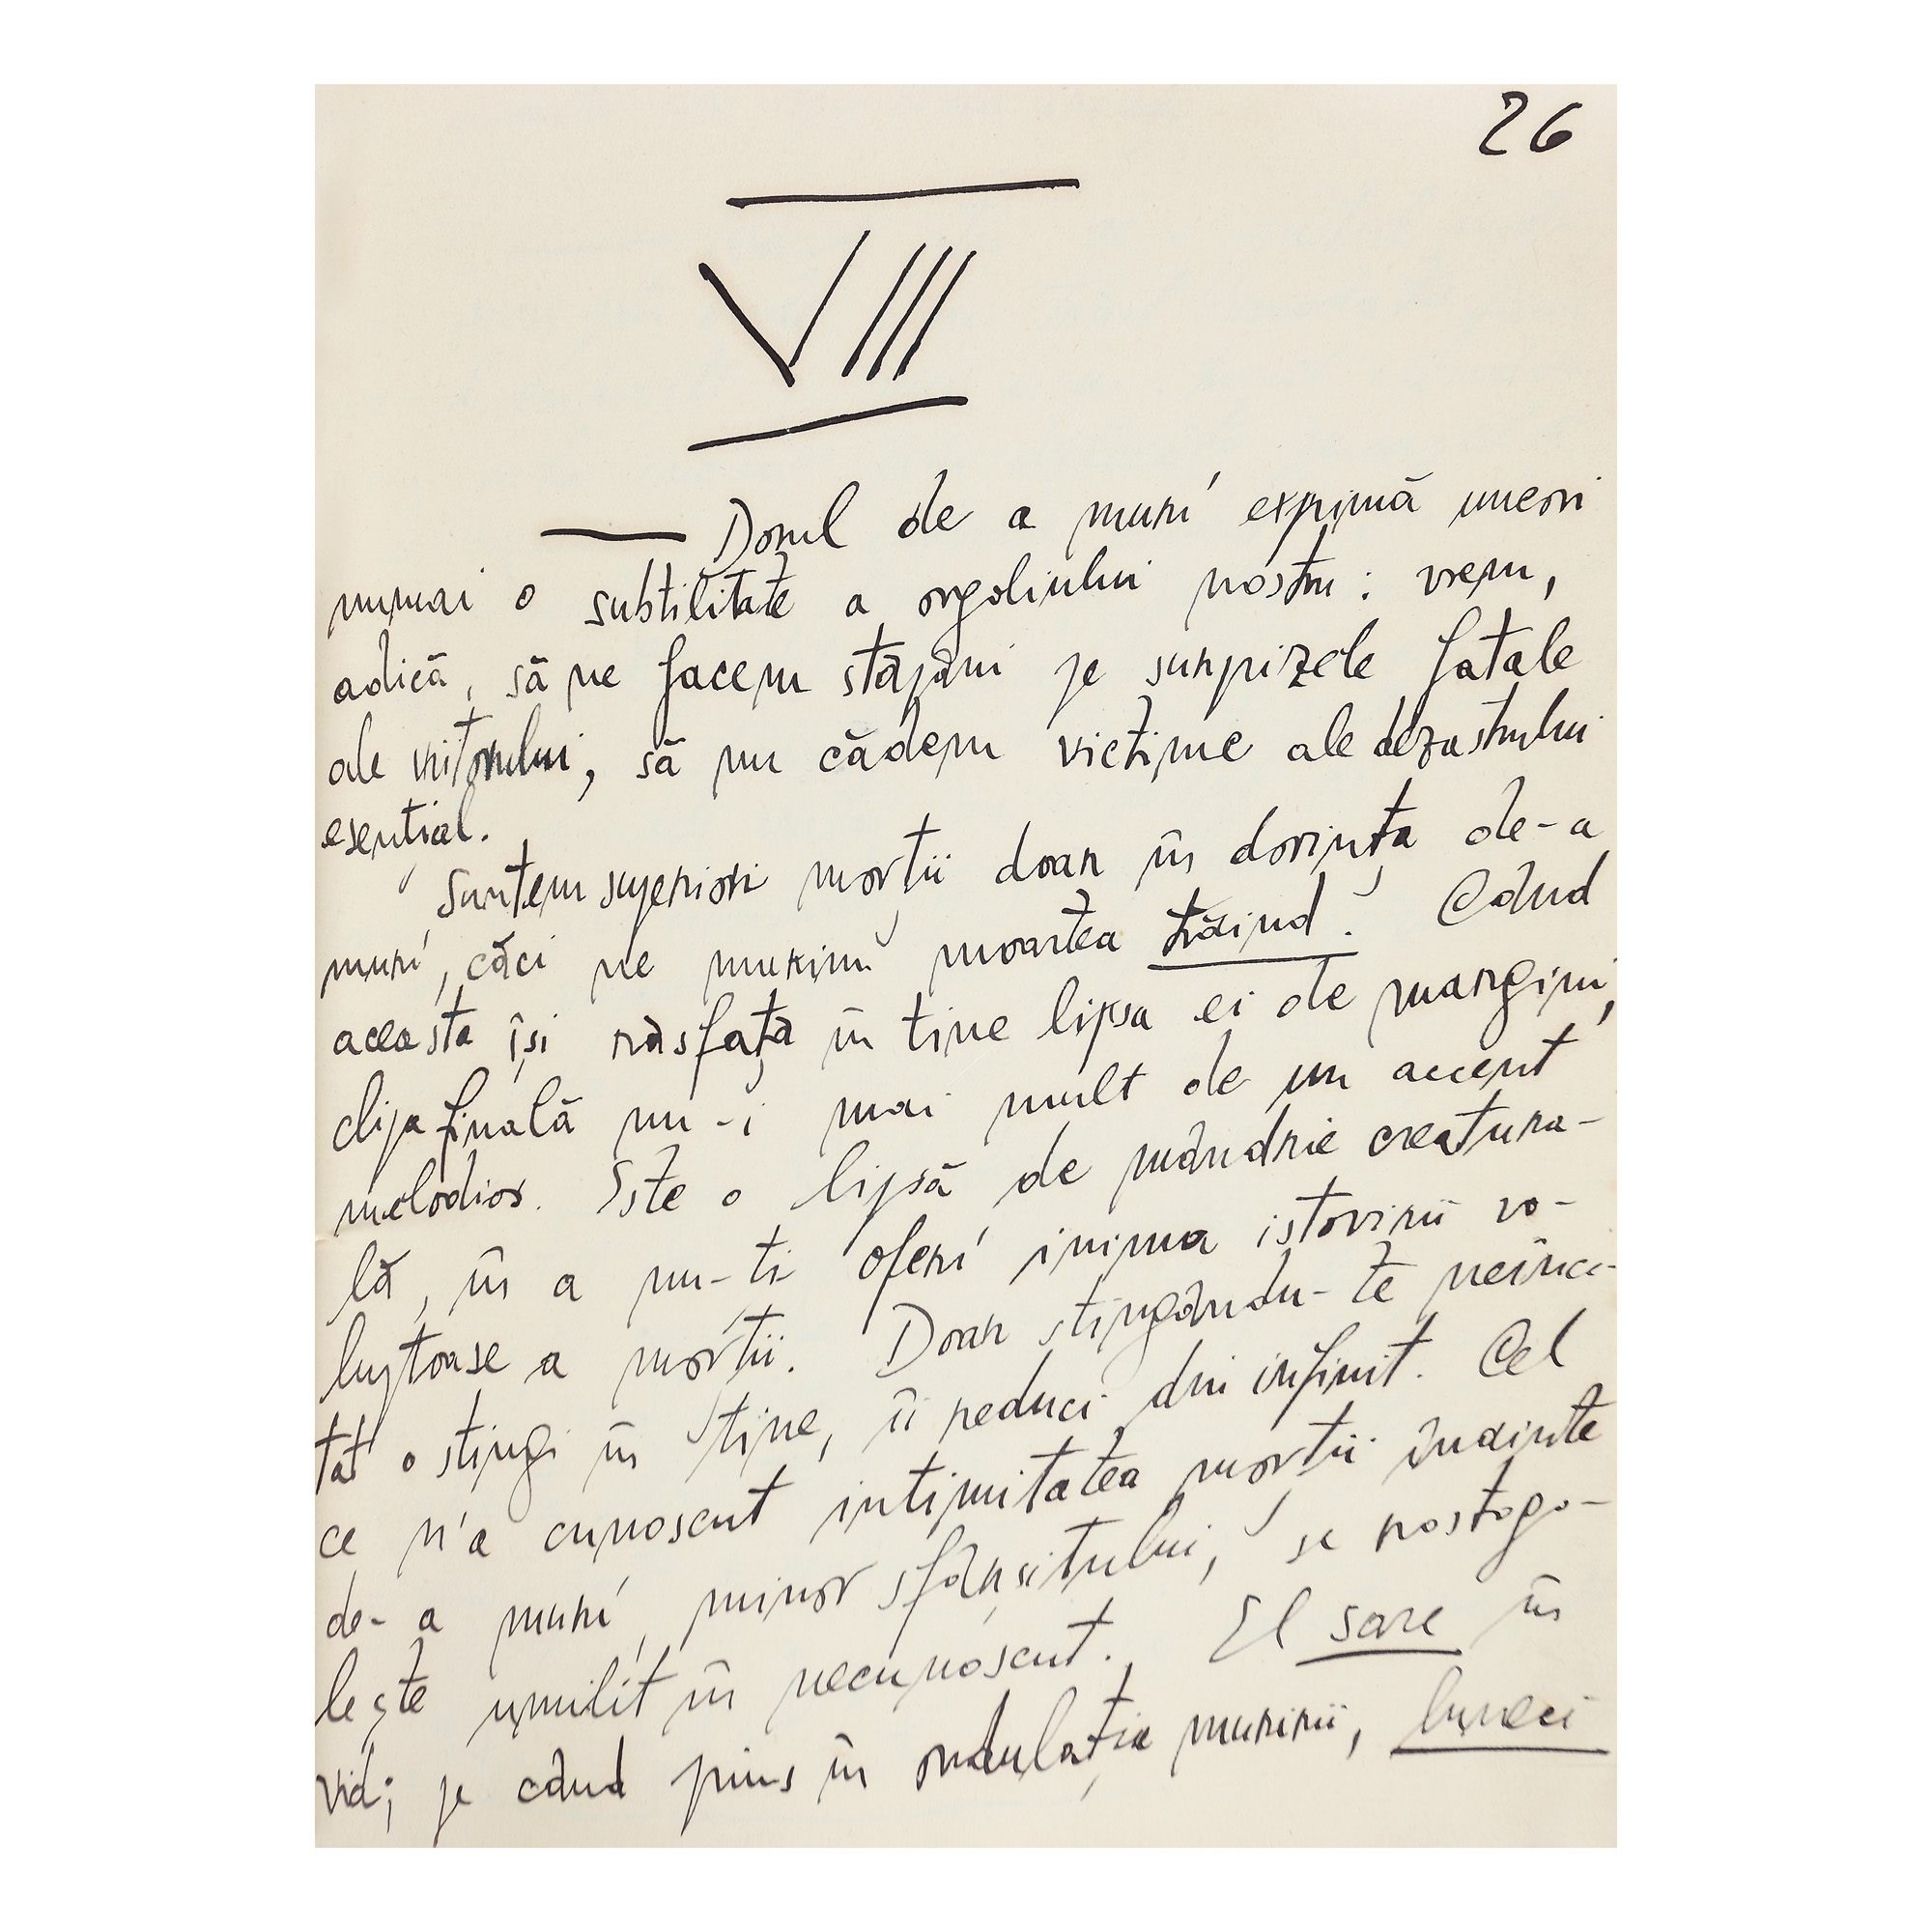 26
VIII
— Dorul de a murí exprimă uneori
numai o subtilitate a orgoliului nostru: vrem,
adică, să ne facem stăpâni pe surprizele fatale
ale viitorului, să nu cădem victime ale dezastrului
esențial.
Suntem superiori morții doar în dorința de-a
murí, căci ne murim moartea trăind. Când
aceasta își răsfață în tine lipsa ei de margini,
clipa finală nu-i mai mult de un accent
melodios. Este o lipsă de mândrie creatura-
lă, în a nu-ti oferí inima istovirii vo-
luptoase a morții. Doar stingându-te neînce-
tat o stingi în tine, îi reduci din infinit. Cel
ce n'a cunoscut intimitatea morții înainte
de-a murí, minor sfârșitului, se rostogo-
lește umilit în necunoscut. El sare în
vid; pe când prins în ondulația muririi, luneci